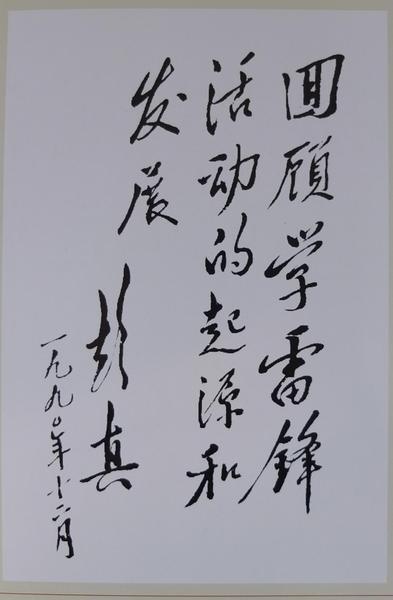 回顾学雷锋
活动的起源和
发展
彭真
一九九〇年十二月